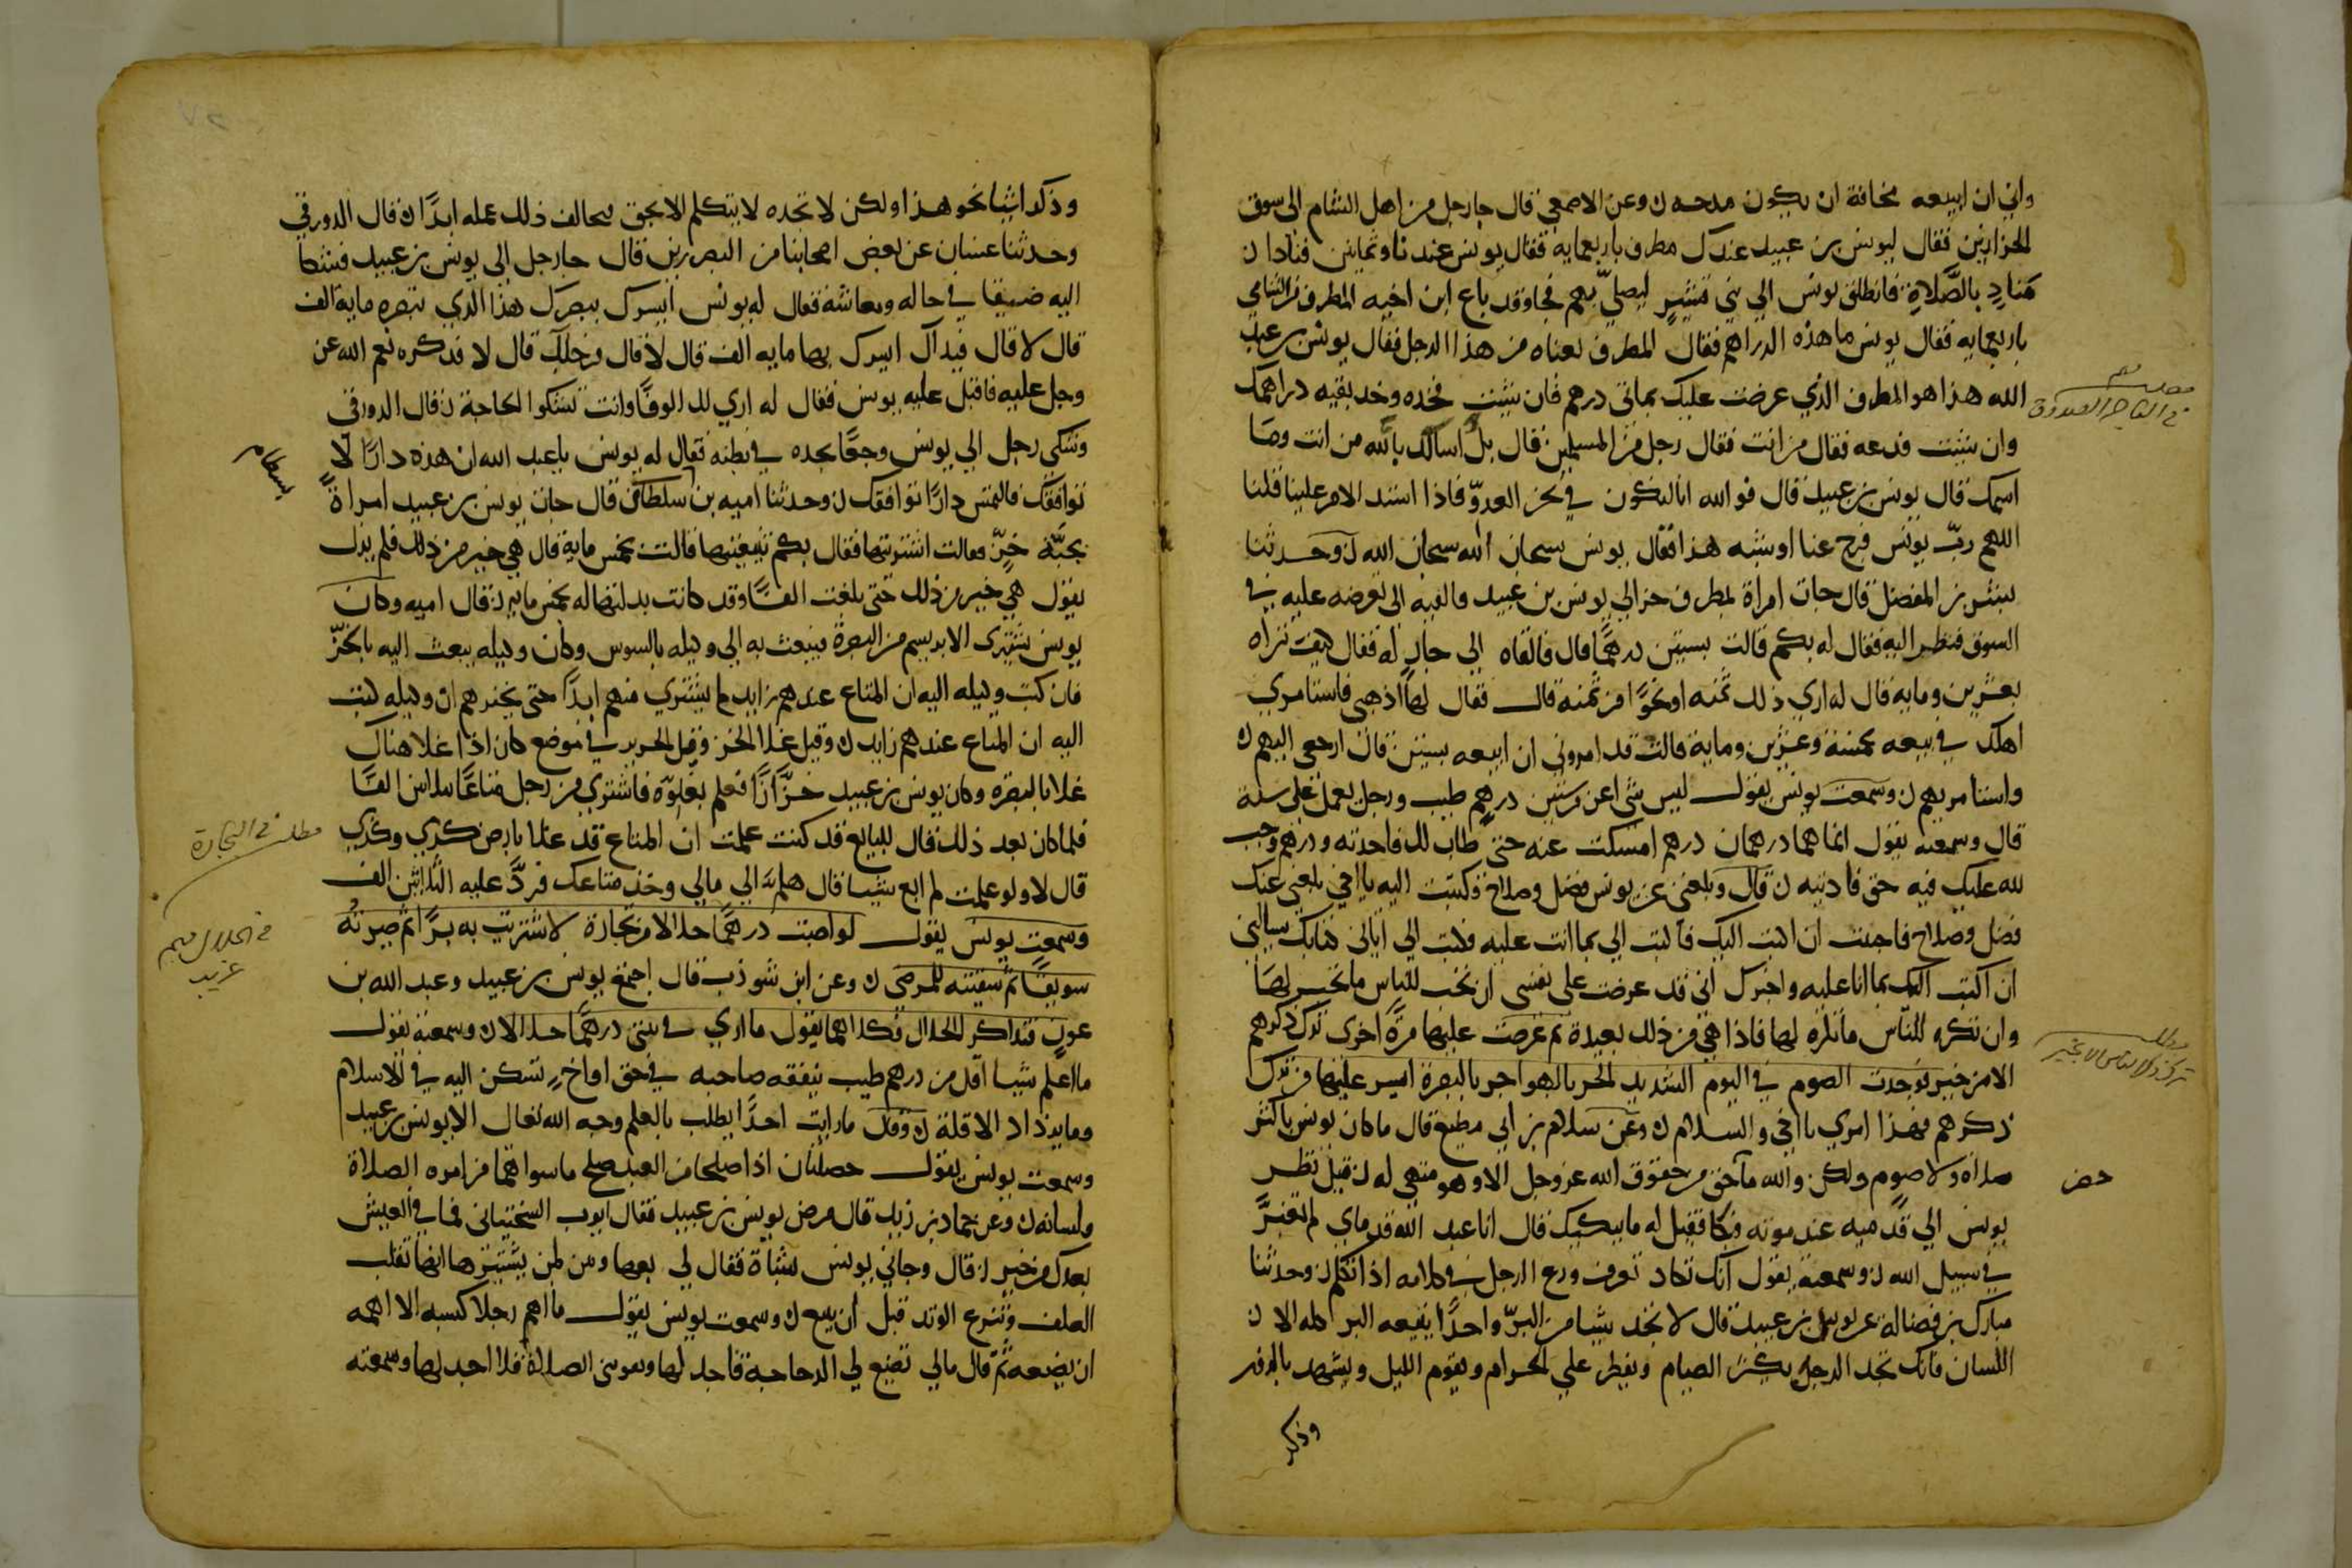 واني ان ابيعه مخافة ان يكون مدحه ن وعن الاصمعي قال جا رجل من اهل الشام الى سوق
الخزازين فقال ليونس بن عبيد عندك مطرف باربعمايه فقال يونس عندنا وثمانين فنادا ن
مناد بالصلاة فانطلق يونس الي بني قشير ليصلي بهم فجا وقد باع ابن اخيه المطرف من الشامي
باربعمايه فقال يونس ما هذه الدراهم فقال المطرف بعناه من هذا الرجل فقال يونس يا عبد
الله هذا هو المطرف الذي عرضت عليك بمائتي درهم فان شيت فخده وخد بقيه دراهمك
وان شيت فدعه فقال من انت فقال رجل من المسلمين قال بل اسالك بالله من انت وما
اسمك قال يونس بن عبيد قال فو الله انا لنكون في نحر العدو فاذا اشتد الامر علينا قلنا
اللهم رب يونس فرج عنا او شبه هذا فقال يونس سبحان الله سبحان الله ن وحدثنا
بشر بن المفضل قال جات امراة بمطرف خز الي يونس بن عبيد فالقته الى تعرضه عليه في
السوق فنظر اليه فقال له بكم قالت بستين درهما قال فالقاه الي جار له فقال كيف تراه
بعشرين ومايه قال له اري ذلك ثمنه او نحوا من ثمنه قال فقال لها اذهبي فاستامري
اهلك في بيعه بخمسة وعشرين وماية قالت قد امروني ان ابيعه بستين قال ارجعي اليهم ن
واستامريهم ن وسمعت يونس يقول ليس شي اعز من شيين درهم طيب ورجل يعمل على سنة
قال وسمعته يقول انما هما درهمان درهم امسكت عنه حتى طاب لك فاخدته ودرهم وجب
لله عليك فيه حق فاديته ن قال وبلغني عن يونس فضل وصلاح فكتبت اليه يا اخي بلغني عنك
فضل وصلاح فاحببت ان اكتب اليك فاكتب الي بما انت عليه فكتب الي اتاني كتابك تسالني
ان اكتب اليك بما انا عليه واخبرك اني قد عرضت على نفسي ان تحب للناس ما تحب لها
وان تكره للناس ما تكره لها فاذا هي من ذلك بعيدة ثم عرضت عليها مرة اخرى ترك ذكرهم
الا من خير فوجدت الصوم في اليوم الشديد الحر بالهواجر بالبصرة ايسر عليها من ترك
ذكرهم فهذا امري يا اخي والسلام ن وعن سلام بن ابي مطيع قال ما كان يونس باكثر
صلاه ولا صوم ولكن والله ما حق من حقوق الله عز وجل الا وهو متهي له ن قيل نظر
يونس الي قدميه عند موته فبكا فقيل له ما يبكيك قال انا عبد الله قدماي لم تغبر
في سبيل الله ن وسمعته يقول انك تكاد تعرف ورع الرجل في كلامه اذا تكلم ن وحدثنا
مبارك بن فضالة عن يونس بن عبيد قال لا تجد شيا من البر واحدا يتبعه البر كله الا ن
اللسان فانك تجد الرجل يكثر الصيام ويفطر علي الحرام ويقوم الليل ويشهد بالزور
وذكر
مطلب مهم
في التاجر الصدوق
مطلب
ترك ذكر الناس الا بخير
حضر
وذكر اشيا نحو هذا ولكن لا تجده لا يتكلم الا بحق فيخالف ذلك عمله ابدا ن قال الدورقي
وحدثنا غسان عن بعض اصحابنا من البصريين قال جا رجل الي يونس بن عبيد فشكا
اليه ضيقا في حاله ومعاشه فقال له يونس ايسرك ببصرك هذا الذي تبصر مايه الف
قال لا قال فيداك ايسرك بها مايه الف قال لا قال ورجلاك قال لا فذكره نعم الله عز
وجل عليه فاقبل عليه يونس فقال له اري لك الوفا وانت تشكوا الحاجة ن قال الدورقي
وشكى رجل الي يونس وجعا يجده في بطنه فقال له يونس يا عبد الله ان هذه دارا لا
توافقك فالتمس دارا توافقك ن وحدثنا اميه بن بسطام قال جات يونس بن عبيد امراة
بجبة خز فقالت اشترتها فقال بكم تبيعينها قالت بخمس ماية قال هي خير من ذلك فلم يزل
يقول هي خير من ذلك حتى بلغت الفا وقد كانت بدلتها له بخمس مايه ن قال اميه وكان
يونس يشتري الابريسم من البصرة فيبعث به الى وكيله بالسوس وكان وكيله يبعث اليه بالخز
فان كتب وكيله اليه ان المتاع عندهم زايد لم يشتري منهم ابدا حتى يخبرهم ان وكيله كتب
اليه ان المتاع عندهم زايد ن وقيل غلا الخز وقيل الحرير في موضع كان اذا غلا هناك
غلا بالبصره وكان يونس بن عبيد خزازا فعلم بغلوه فاشتري من رجل متاعا بثلاثين الفا
فلما كان بعد ذلك قال للبايع قد كنت علمت ان المتاع قد غلا بارض كذي وكذي
قال لا ولو علمت لم ابع شيا قال هلم الي مالي وخذ متاعك فرد عليه الثلاثين الف
وسمعت يونس يقول لو اصبت درهما حلالا من تجارة لاشتريت به برا ثم صيرته
سويقا ثم سقيته للمرضى ن وعن ابن شوذب قال اجتمع يونس بن عبيد وعبد الله بن
عون فتذاكر الحلال فكلاهما يقول ما اري في بيتي درهما حلالا ن وسمعته يقول
ما اعلم شيا اقل من درهم طيب ينفقه صاحبه في حق او اخ تسكن اليه في الاسلام
وما يزداد الا قلة ن وقال ما رايت احدا يطلب بالعلم وجه الله تعالى الا يونس بن عبيد
وسمعت يونس يقول خصلتان اذا صلحا من العبد صلح ما سواهما من امره الصلاة
ولسانه ن وعن حماد بن زيد قال مرض يونس بن عبيد فقال ايوب السختياني فما في العيش
بعدك من خير ن قال وجاني يونس بشاة فقال لي بعها ومن لمن يشتريها انها تقلب
العلف وتنزع الوتد قبل ان يبيع ن وسمعت يونس يقول ما اهم رجلا كسبه الا اهمه
ان يضعه ثم قال مالي تضيع لي الدجاجة فاجد لها وتفوتني الصلاة فلا اجد لها وسمعته
بسطام
مطلب في التجارة
في الحلال مهم
عزيز
٧٢